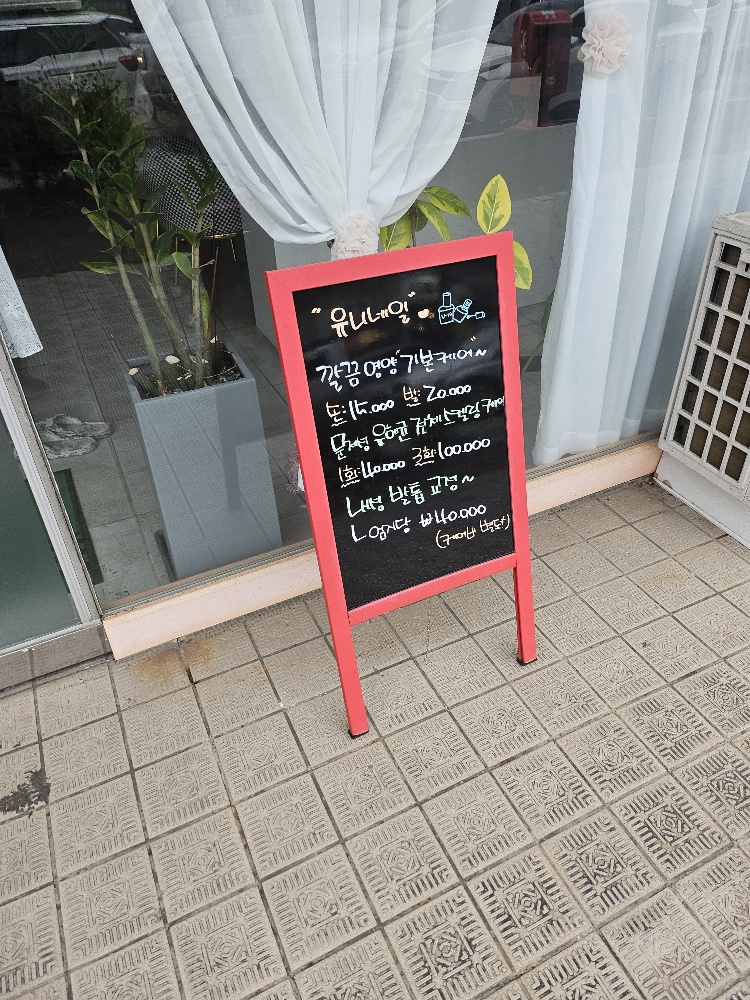 "유니네일"
깔끔영양 "기본케어"~
손:15.000 발:20.000
문제성 유해균 검체스켈링 케어
1회40.000 3회100.000
내성 발톱 교정~
ㄴ엄지당 ₩40.000
(케어비 별도)